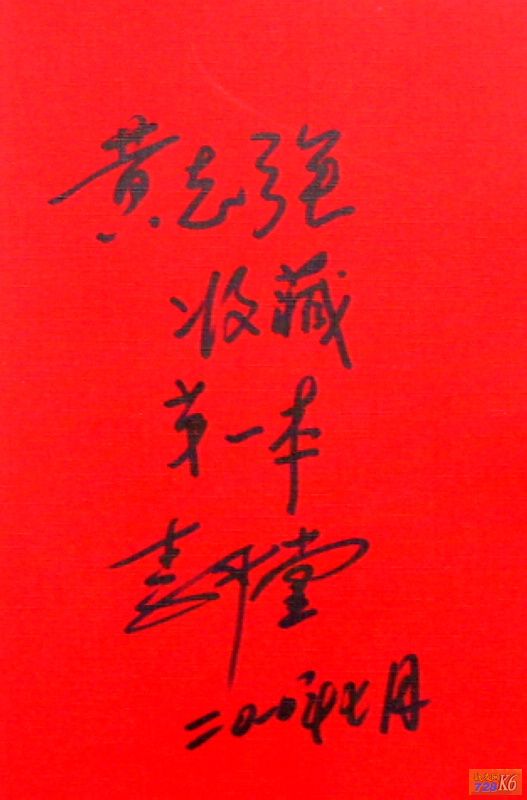 黄志强
收藏
第一本
堂
二〇〇年七月
728K6